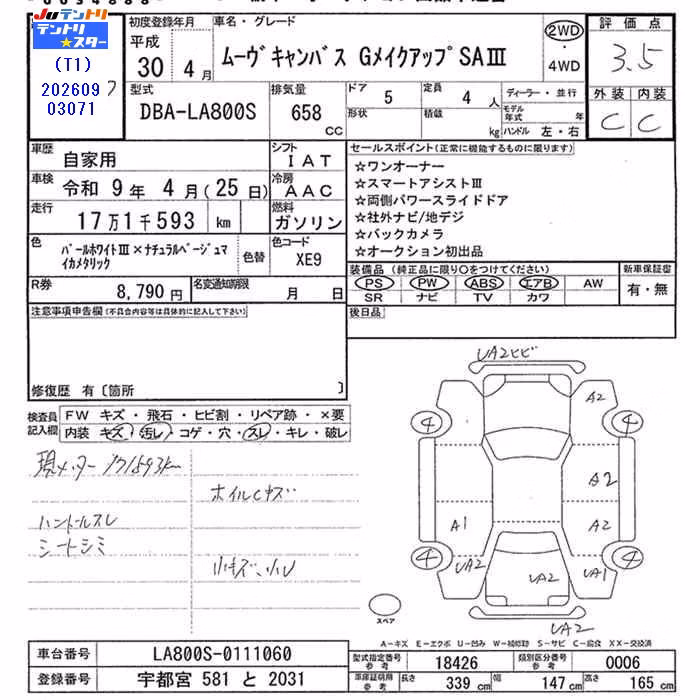 Juテントリ
テントリ★スター
(T1)
202609
03071
初度登録年月
平成
30年 4月
車名・グレード
ムーヴキャンバス GメイクアップSAⅢ
2WD
・
4WD
評価点
3.5
型式
DBA-LA800S
排気量
658
CC
ドア 5
定員 4人
ディーラー・並行
形状
積載 kg
モデル年式 年
ハンドル 左・右
外装 内装
C C
車歴
自家用
シフト
IAT
車検
令和 9年 4月(25日)
冷房
AAC
走行
17万1千593 km
燃料
ガソリン
色
パールホワイトⅢ×ナチュラルベージュマイカメタリック
色替
色コード
XE9
R券
8,790円
名変通知期限
月 日
セールスポイント(正常に機能するものに限ります)
☆ワンオーナー
☆スマートアシストⅢ
☆両側パワースライドドア
☆社外ナビ/地デジ
☆バックカメラ
☆オークション初出品
装備品(純正品に限り○をつけてください)
PS PW ABS エアB AW
SR ナビ TV カワ
新車保証書
有・無
注意事項申告欄(不具合内容等は具体的に記入して下さい)
後日品
修復歴 有〔箇所 〕
検査員記入欄
FW キズ・飛石・ヒビ割・リペア跡・×要
内装 キズ・汚レ・コゲ・穴・スレ・キレ・破レ
現メーター 171593km
ホイルキズ
ハンドルスレ
シートシミ
小キズ、小凹
UA2ヒビ
A2
4
4
A2
A1
A2
4
4
UA2
UA2
UA1
UA2
スペア
A-キズ E-エクボ U-凹み W-補修跡 S-サビ C-腐食 XX-交換済
車台番号
LA800S-0111060
登録番号
宇都宮 581 と 2031
型式指定番号
参考
18426
類別区分番号
参考
0006
車庫証明用
参考
長さ 339 cm
幅 147 cm
高さ 165 cm